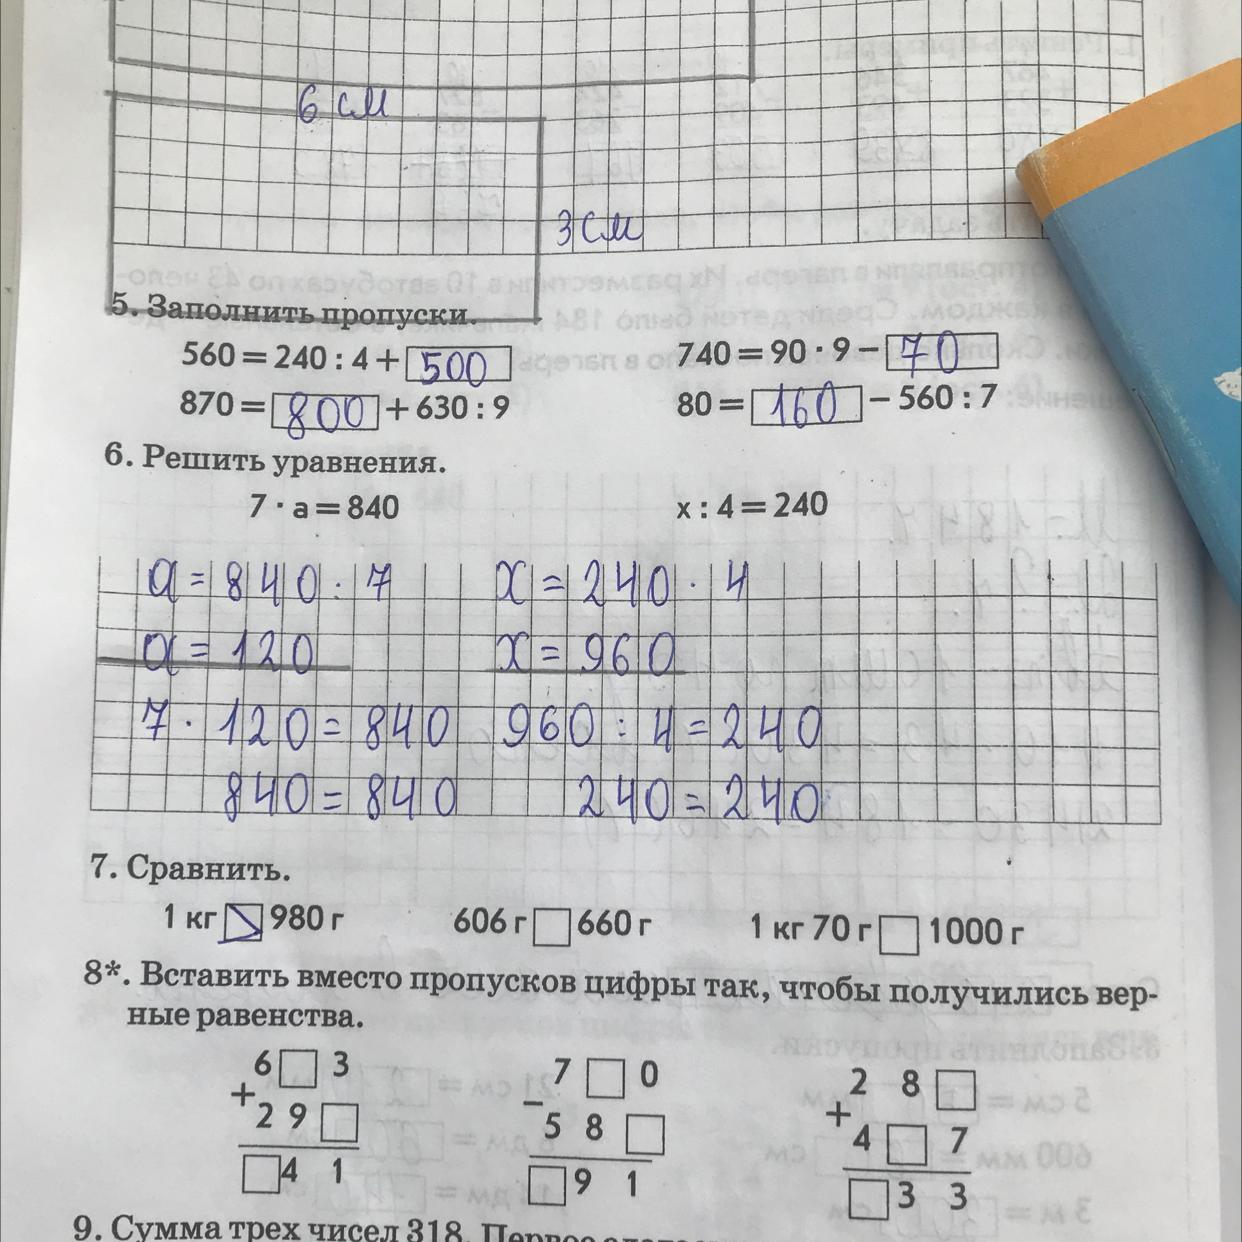 6 см
3 см
5. Заполнить пропуски.
560 = 240 : 4 + 500 740 = 90 · 9 − 70
870 = 800 + 630 : 9 80 = 160 − 560 : 7
6. Решить уравнения.
7 · а = 840 х : 4 = 240
а = 840 : 7 х = 240 · 4
а = 120 х = 960
7 · 120 = 840 960 : 4 = 240
840 = 840 240 = 240
7. Сравнить.
1 кг > 980 г 606 г □ 660 г 1 кг 70 г □ 1000 г
8*. Вставить вместо пропусков цифры так, чтобы получились вер-
ные равенства.
6 □ 3 7 □ 0 2 8 □
+ − +
2 9 □ 5 8 □ 4 □ 7
□ 4 1 □ 9 1 □ 3 3
9. Сумма трех чисел 318. Первое